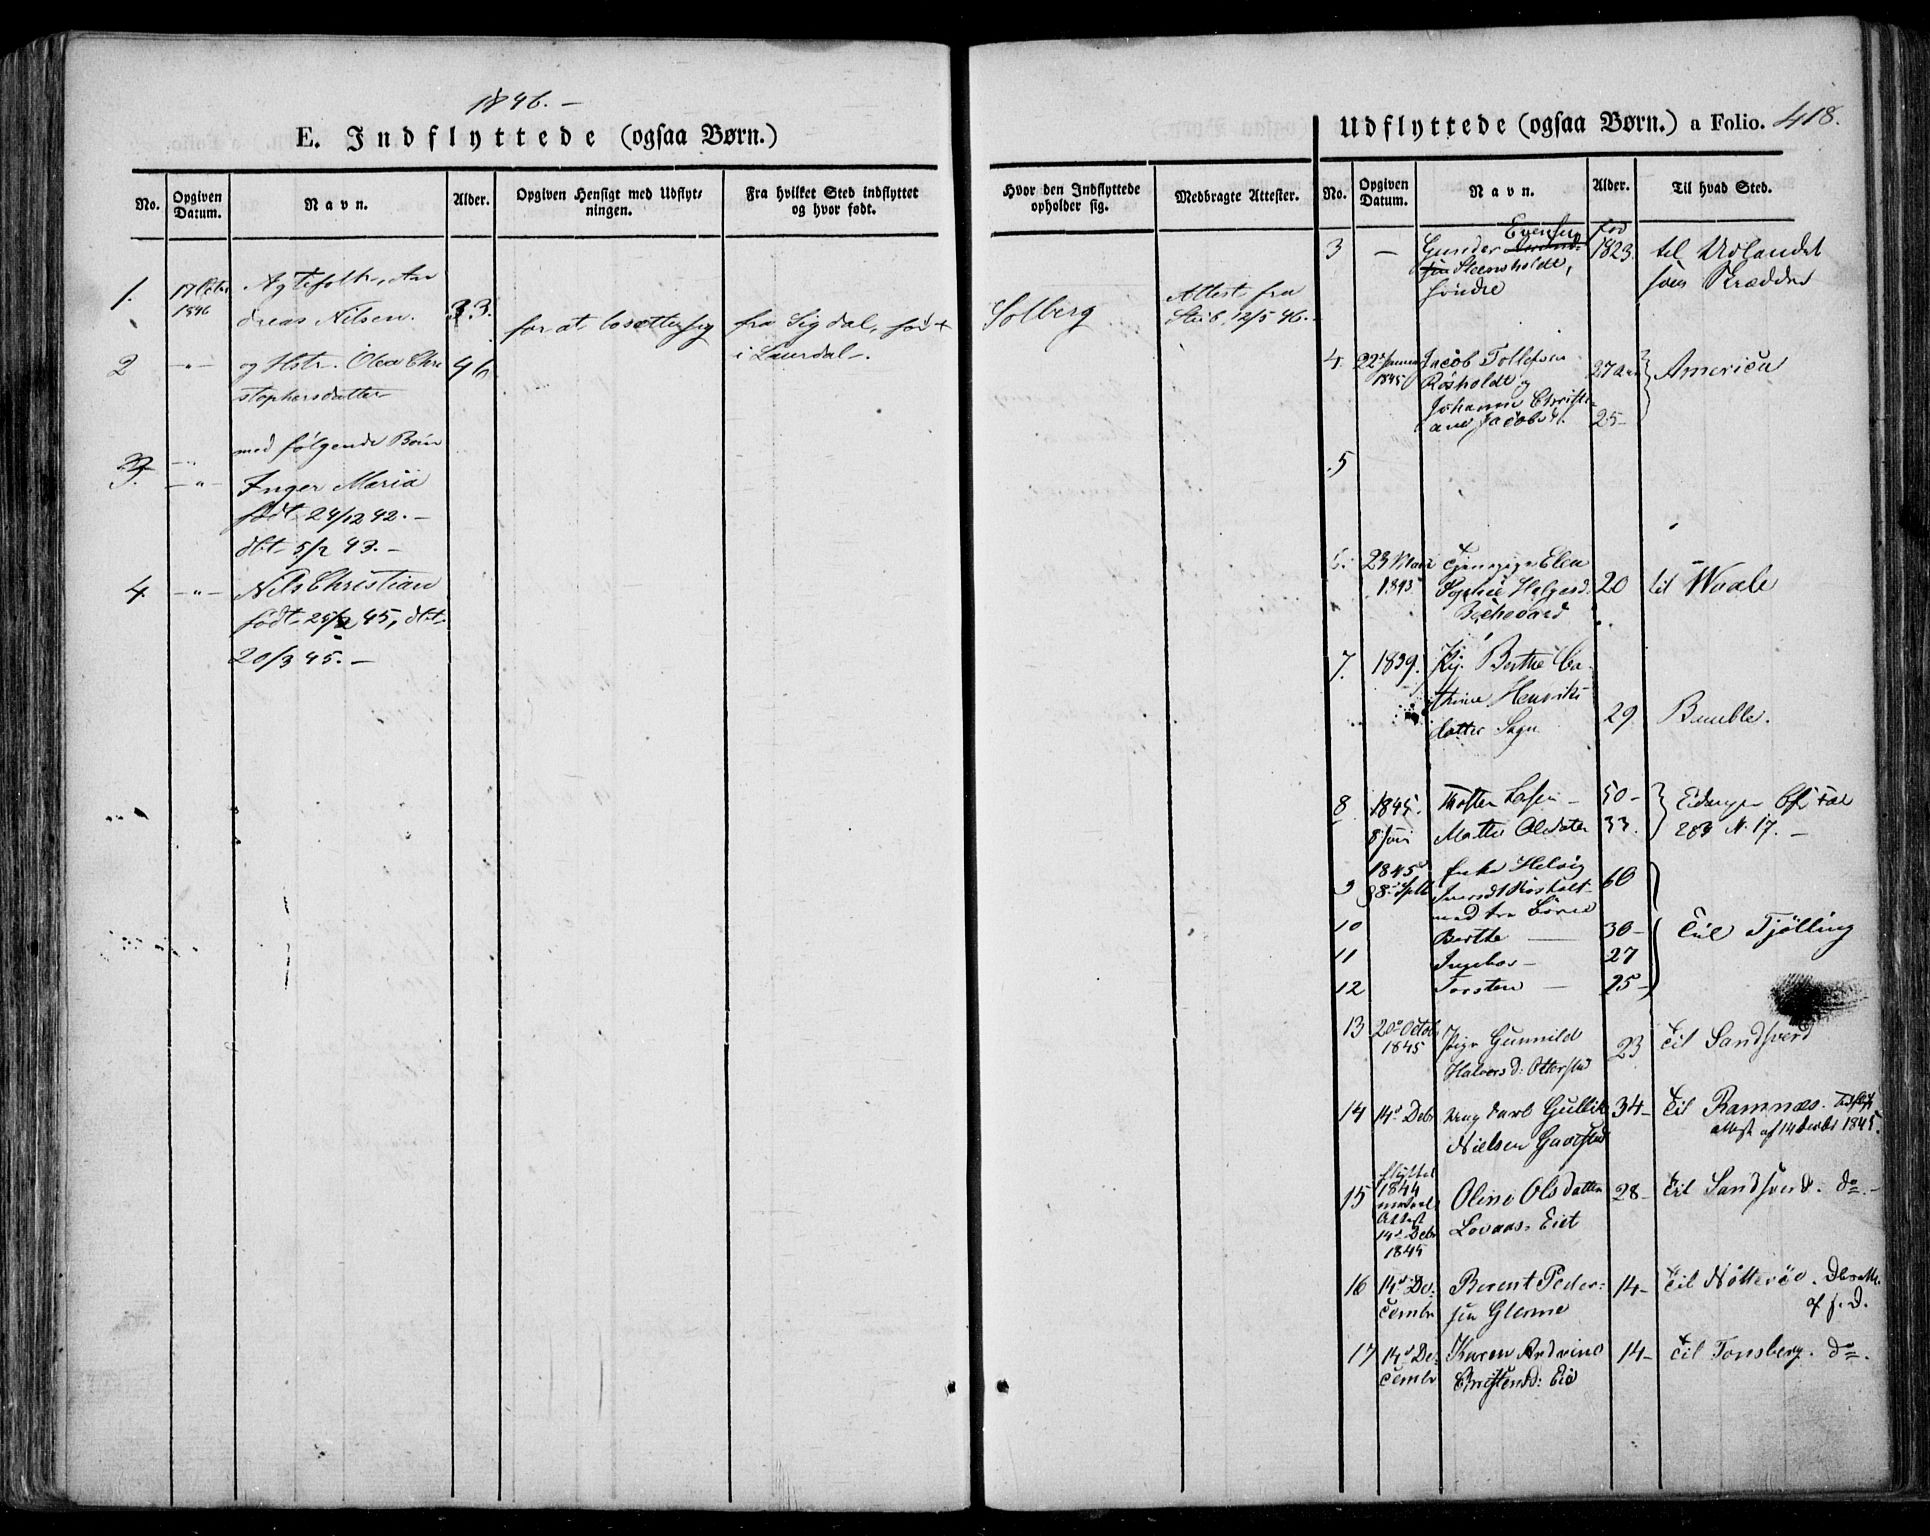 1846. –
E. Indflyttede (ogsaa Børn.)
No.
Opgiven Datum.
Navn.
Alder.
Opgiven Hensigt med Udflyt-
ningen.
Fra hvilket Sted indflyttet
og hvor født.
Hvor den Indflyttede
opholder sig.
Medbragte Attester.
1. 17 Octbr 1846
Ægtefolk, An
dreas Nilsen. 33.
for at bosætte sig
fra Sigdal, fød
i Laurdal –.
Solberg
Attest fra
12/5 46.
2 – " –
og Hstr. Olea Chri
stophersdatter
46
med følgende Børn
3. – " –
Inger Maria
født 24/12 42. –
dbt 5/2 43. –
4. – " –
Nils Christian
født 25/2 45, dbt
20/3 45. –
Udflyttede (ogsaa Børn.) a Folio. 418.
No.
Opgiven Datum.
Navn.
Alder.
Til hvad Sted.
3 –
Gunder Evensen
Steensholdt,
søndre
fød 1823.
til Udlandet
som Skrædder
4. 22 Januar 1845
Jacob Tollefsen
Røsholdt og
27 Aar
Johanne Christi-
ane Jacobsd.
25 –
America
5
6. 23 Marts 1845
Tjenepige Elen
Sophie Holgersd.
20
til Waale
7. 1839.
Pig. Berthe Ca-
thrine Henriks
datter Sogn
29
Bamble.
8 1845. 8 Juni
50 –
Marthe Olsdatter 33.
283 N. 17. –
9 1845 28 Septb
Enke Helvig
Iversdt Røsholt
med tre Børn
60
10 Berthe — 30 –
11 Ingebor – 27
12 Torsten — 25 –
til Tjølling
13 20 Octob 1845
Pige Gunnild
Halvorsd: Ottersted
23
til Sandsverd
14 14d Debr
Ung karl Gullik
Nielsen Gaarstad
34 –
til Ramnæs.
attest af 14 Decbr 1845.
15 flyttet 1844 Attest 14d Debr 1845
Oline Olsdatter
Lovaas-Eiet
28 –
til Sandsverd. do. –
16 14d De-
cembr
Berent Peder-
sen Glerme
14 –
til Nøtterøe.
af s. D.
17 14d De-
cembr
Karen Andrine
Christensd: Eie
14 –
til Tønsberg. do.